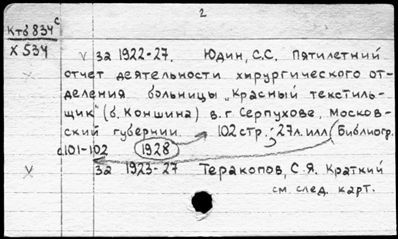 2
Кт6 834с
X 534
V за 1922-27. Юдин, С.С. Пятилетний
отчет деятельности хирургического от-
деления больницы „Красный текстиль-
щик" (б. Коншина) в г. Серпухове, Москов-
ской губернии. 102 стр.; 27 л. илл. (Библиогр.
с101-102 1928
V за 1923-27 Теракопов, С.Я. Краткий
см. след. карт.